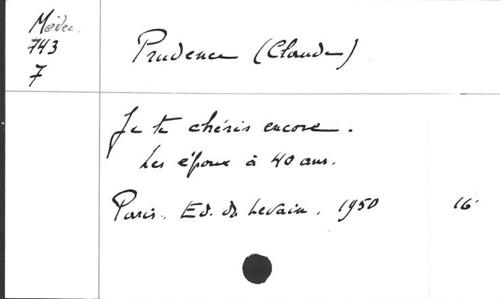 Médec.
743
7
Prudence (Claude)
Je te chéris encore.
Les époux à 40 ans.
Paris. Ed. du Levain. 1950 16°